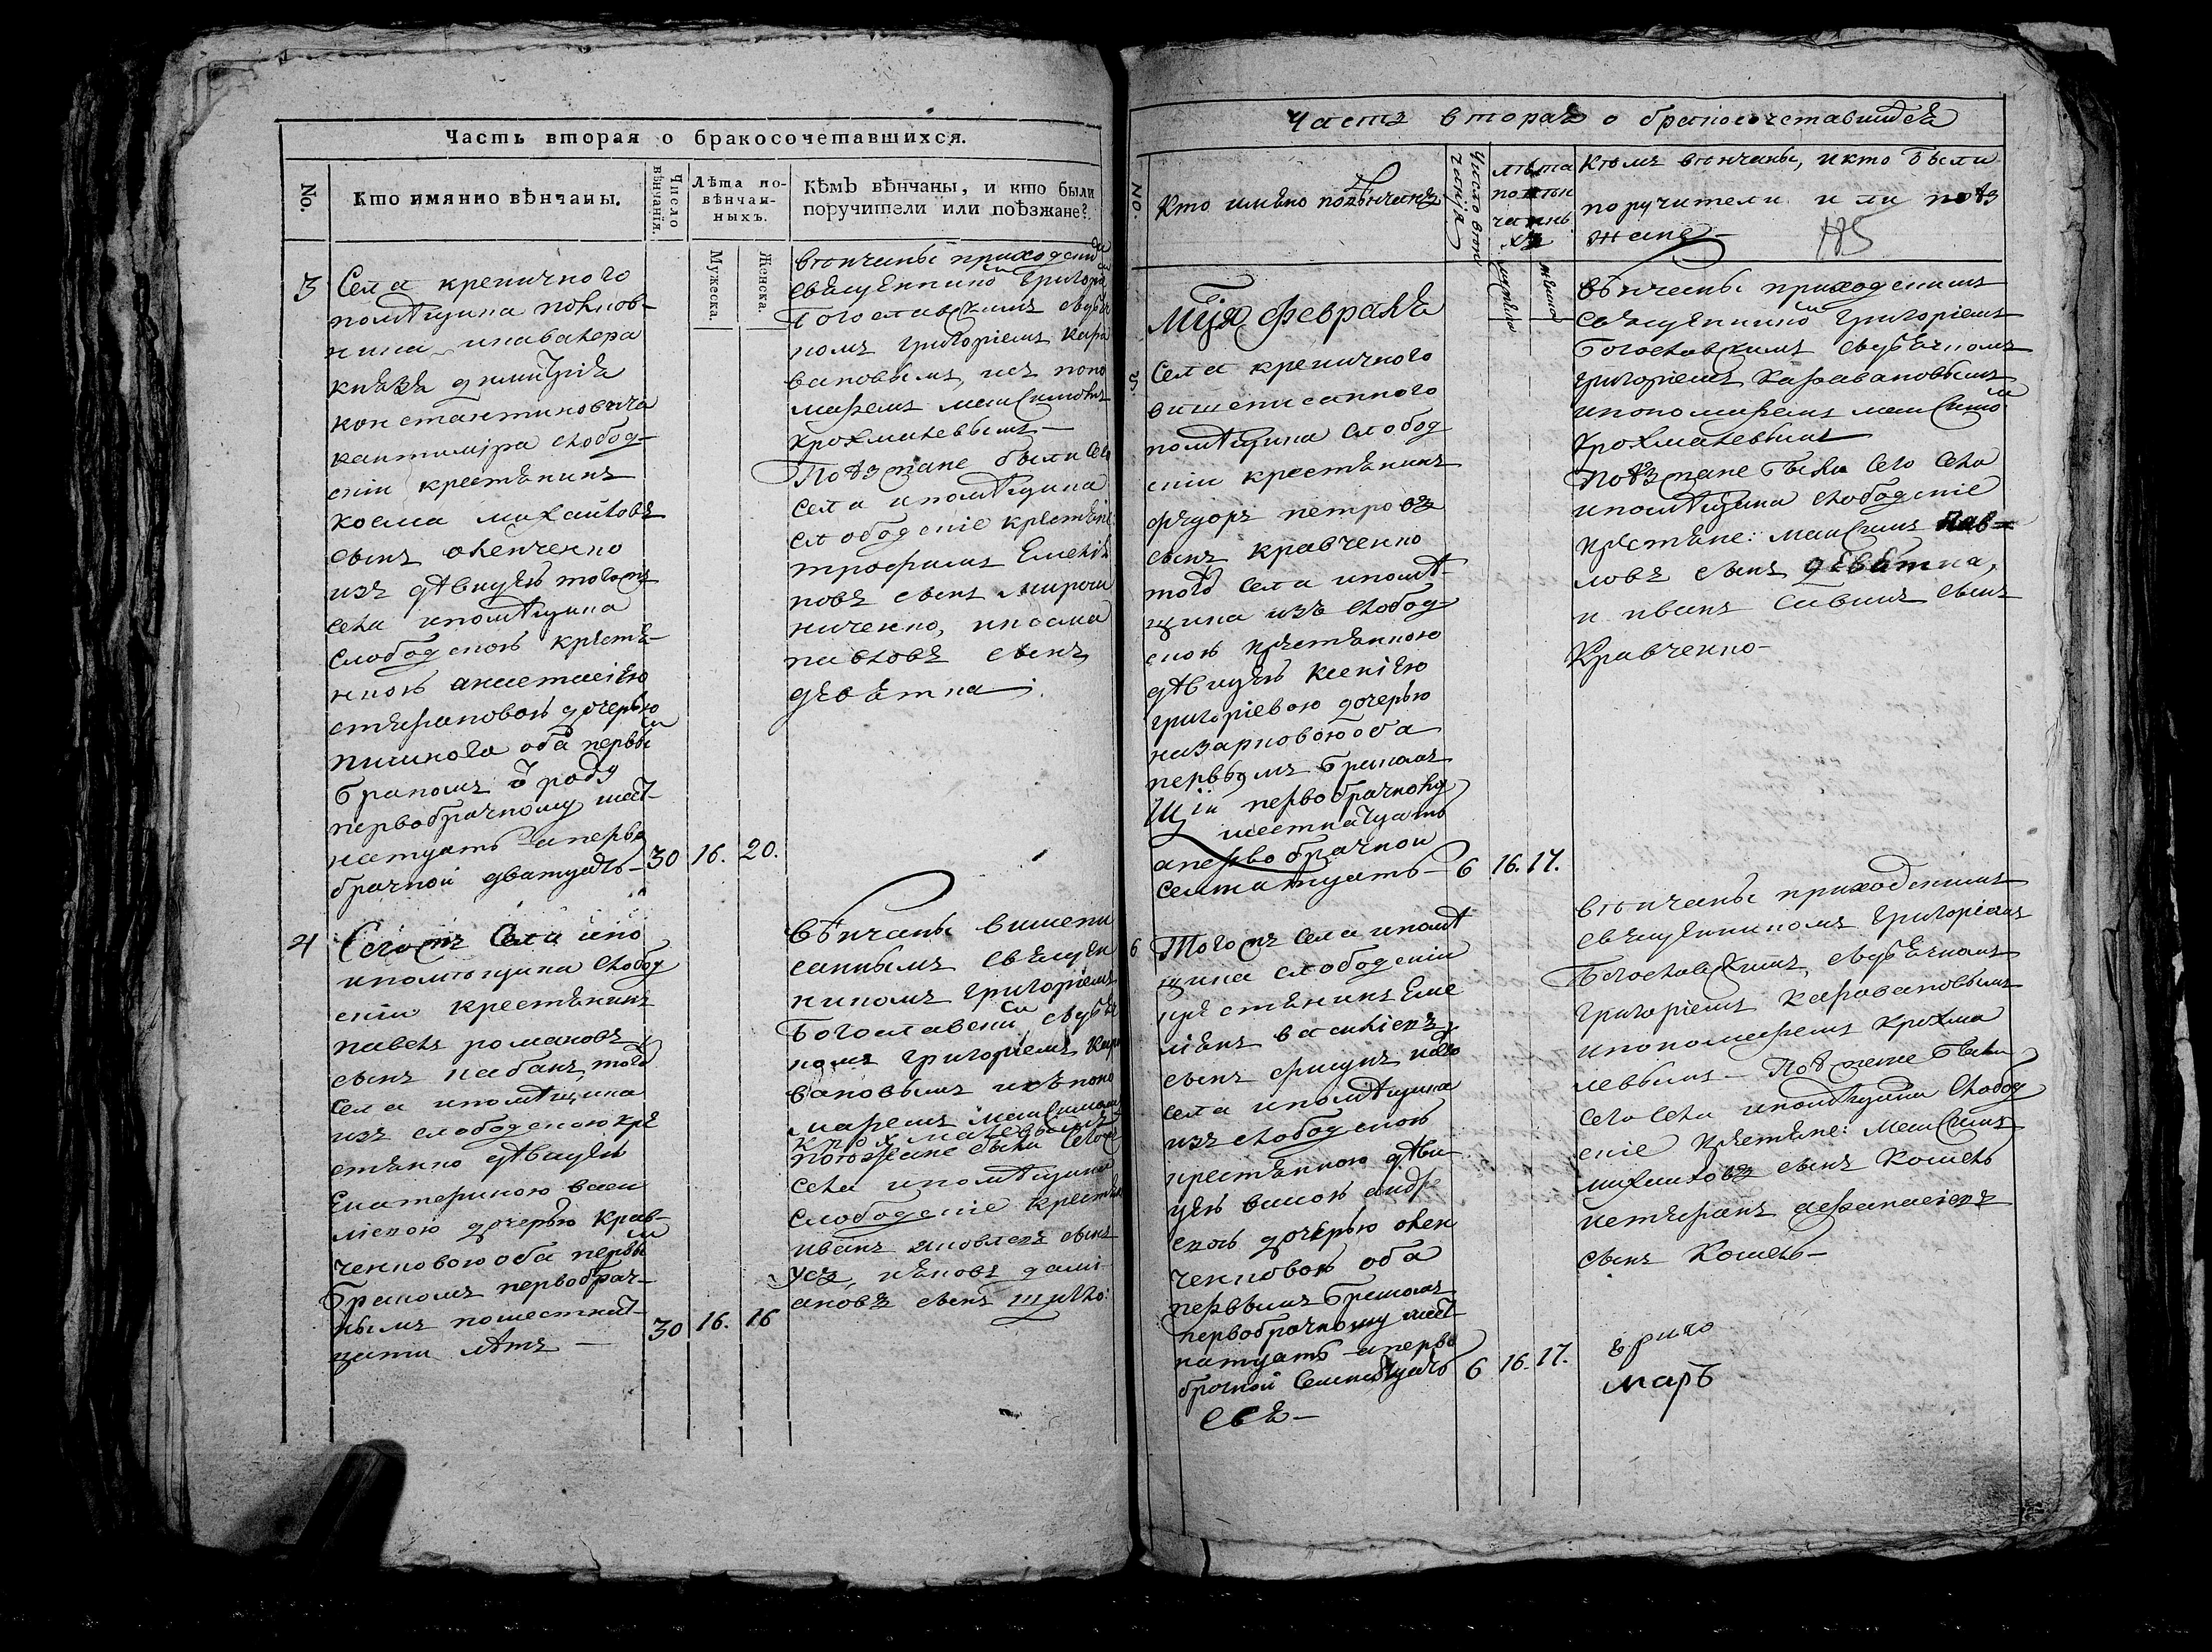 Часть вторая о бракосочетавшихся.
No.
Кто имянно вѣнчаны.
Число вѣнчанія.
Лѣта повѣнчанныхъ.
Мужеска.
Женска.
Кѣмъ вѣнчаны, и кто были
поручители или поѣзжане?
3
Села крепичного
помѣщика полков-
ника и кавалера
князя димитрія
константиновича
кантиміра слобод-
скій крестянинъ
косма михайловъ
сынъ
изъ дѣвицею тогожъ
села и помѣщика
слободскою крестя-
нкою анастасіею
стефановою дочерью
оба первы
бракомъ
первобрачному шест-
натцать а перво
брачной дватцать
30
16.
20.
вѣнчаны приходски
священнико григорі
Богославскимъ с дяч
комъ григоріемъ кара
вановымъ, и съ поно
маремъ максимомъ
крохмалевымъ
Поѣзжане были сего
села и помѣщика
слободскіе крестяне
трофимъ Емелія
новъ сынъ мирош
ниченко, и косма
павловъ сынъ
девятка.
4
Сегожъ Села
и помѣщика слобод
скій крестянинъ
павелъ романовъ
сынъ кабакъ того
Села и помѣщика
изъ слободскою кре
стянко дѣвицею
Екатериною васи
ліевою дочерью крав-
ченковою оба первы
бракомъ первобрач-
нымъ по шестнат-
цати лѣтъ
30
16.
16
вѣнчаны вишепи
саннымъ священ
никомъ григоріемъ
Богославски с дяч
комъ григоріемъ кара
вановымъ и съ поно
маремъ максимом
крохмалевымъ
поѣзжане были сего
села и помѣщика
слободскіе крестян
иванъ яковлевъ сынъ
усъ, и яковъ дамі
ановъ сынъ шило:
Часть вторая о бракосочетавшихся
NO.
Кто имено повѣнчанъ
Число вѣнчанія
лѣта повѣнчаныхъ
мужеска
женска
Кѣмъ вѣнчаны, и кто были
поручители или поѣз
жане
185
Мца Февраля
5.
Села крепичного
вишеписанного
помѣщика слобод
скій крестянинъ
федоръ петровъ
сынъ кравченко
того села и помѣ-
щика изъ слобод-
скою крестянкою
дѣвицею ксеніею
григоріевою дочерью
назарковою оба
первымъ бракомъ
первобрачному
шестнатцать
а первобрачной
семнатцать
6
16.
17.
вѣнчаны приходскимъ
священнико григоріемъ
Богославскимъ с дячкомъ
григоріемъ каравановымъ
и пономаремъ максимо
крохмалевымъ
поѣзжане были сего села
и помѣщика слободскіе
крестяне: максимъ пав-
ловъ сынъ девятка,
и иванъ савинъ сынъ
кравченко
6
Тогожъ села и помѣ
щика слободскій
крестянинъ Еме
ліянъ василіевъ
сынъ
села и помѣщика
изъ слободскою
крестянкою дѣви
цею андре
евою дочерью олек
сенковою оба
первымъ бракомъ
первобрачному шест
натцать а перво
брачной семнатцать
6
16.
17.
вѣнчаны приходскимъ
священникомъ григоріемъ
Богославскимъ, с дячкомъ
григоріемъ каравановымъ
и пономаремъ крохма
левымъ Поѣзжане были
сего села и помѣщика слобод
скіе крестяне: максимъ
михайловъ сынъ кошель
и стефанъ афанасіевъ
сынъ кошель
мар